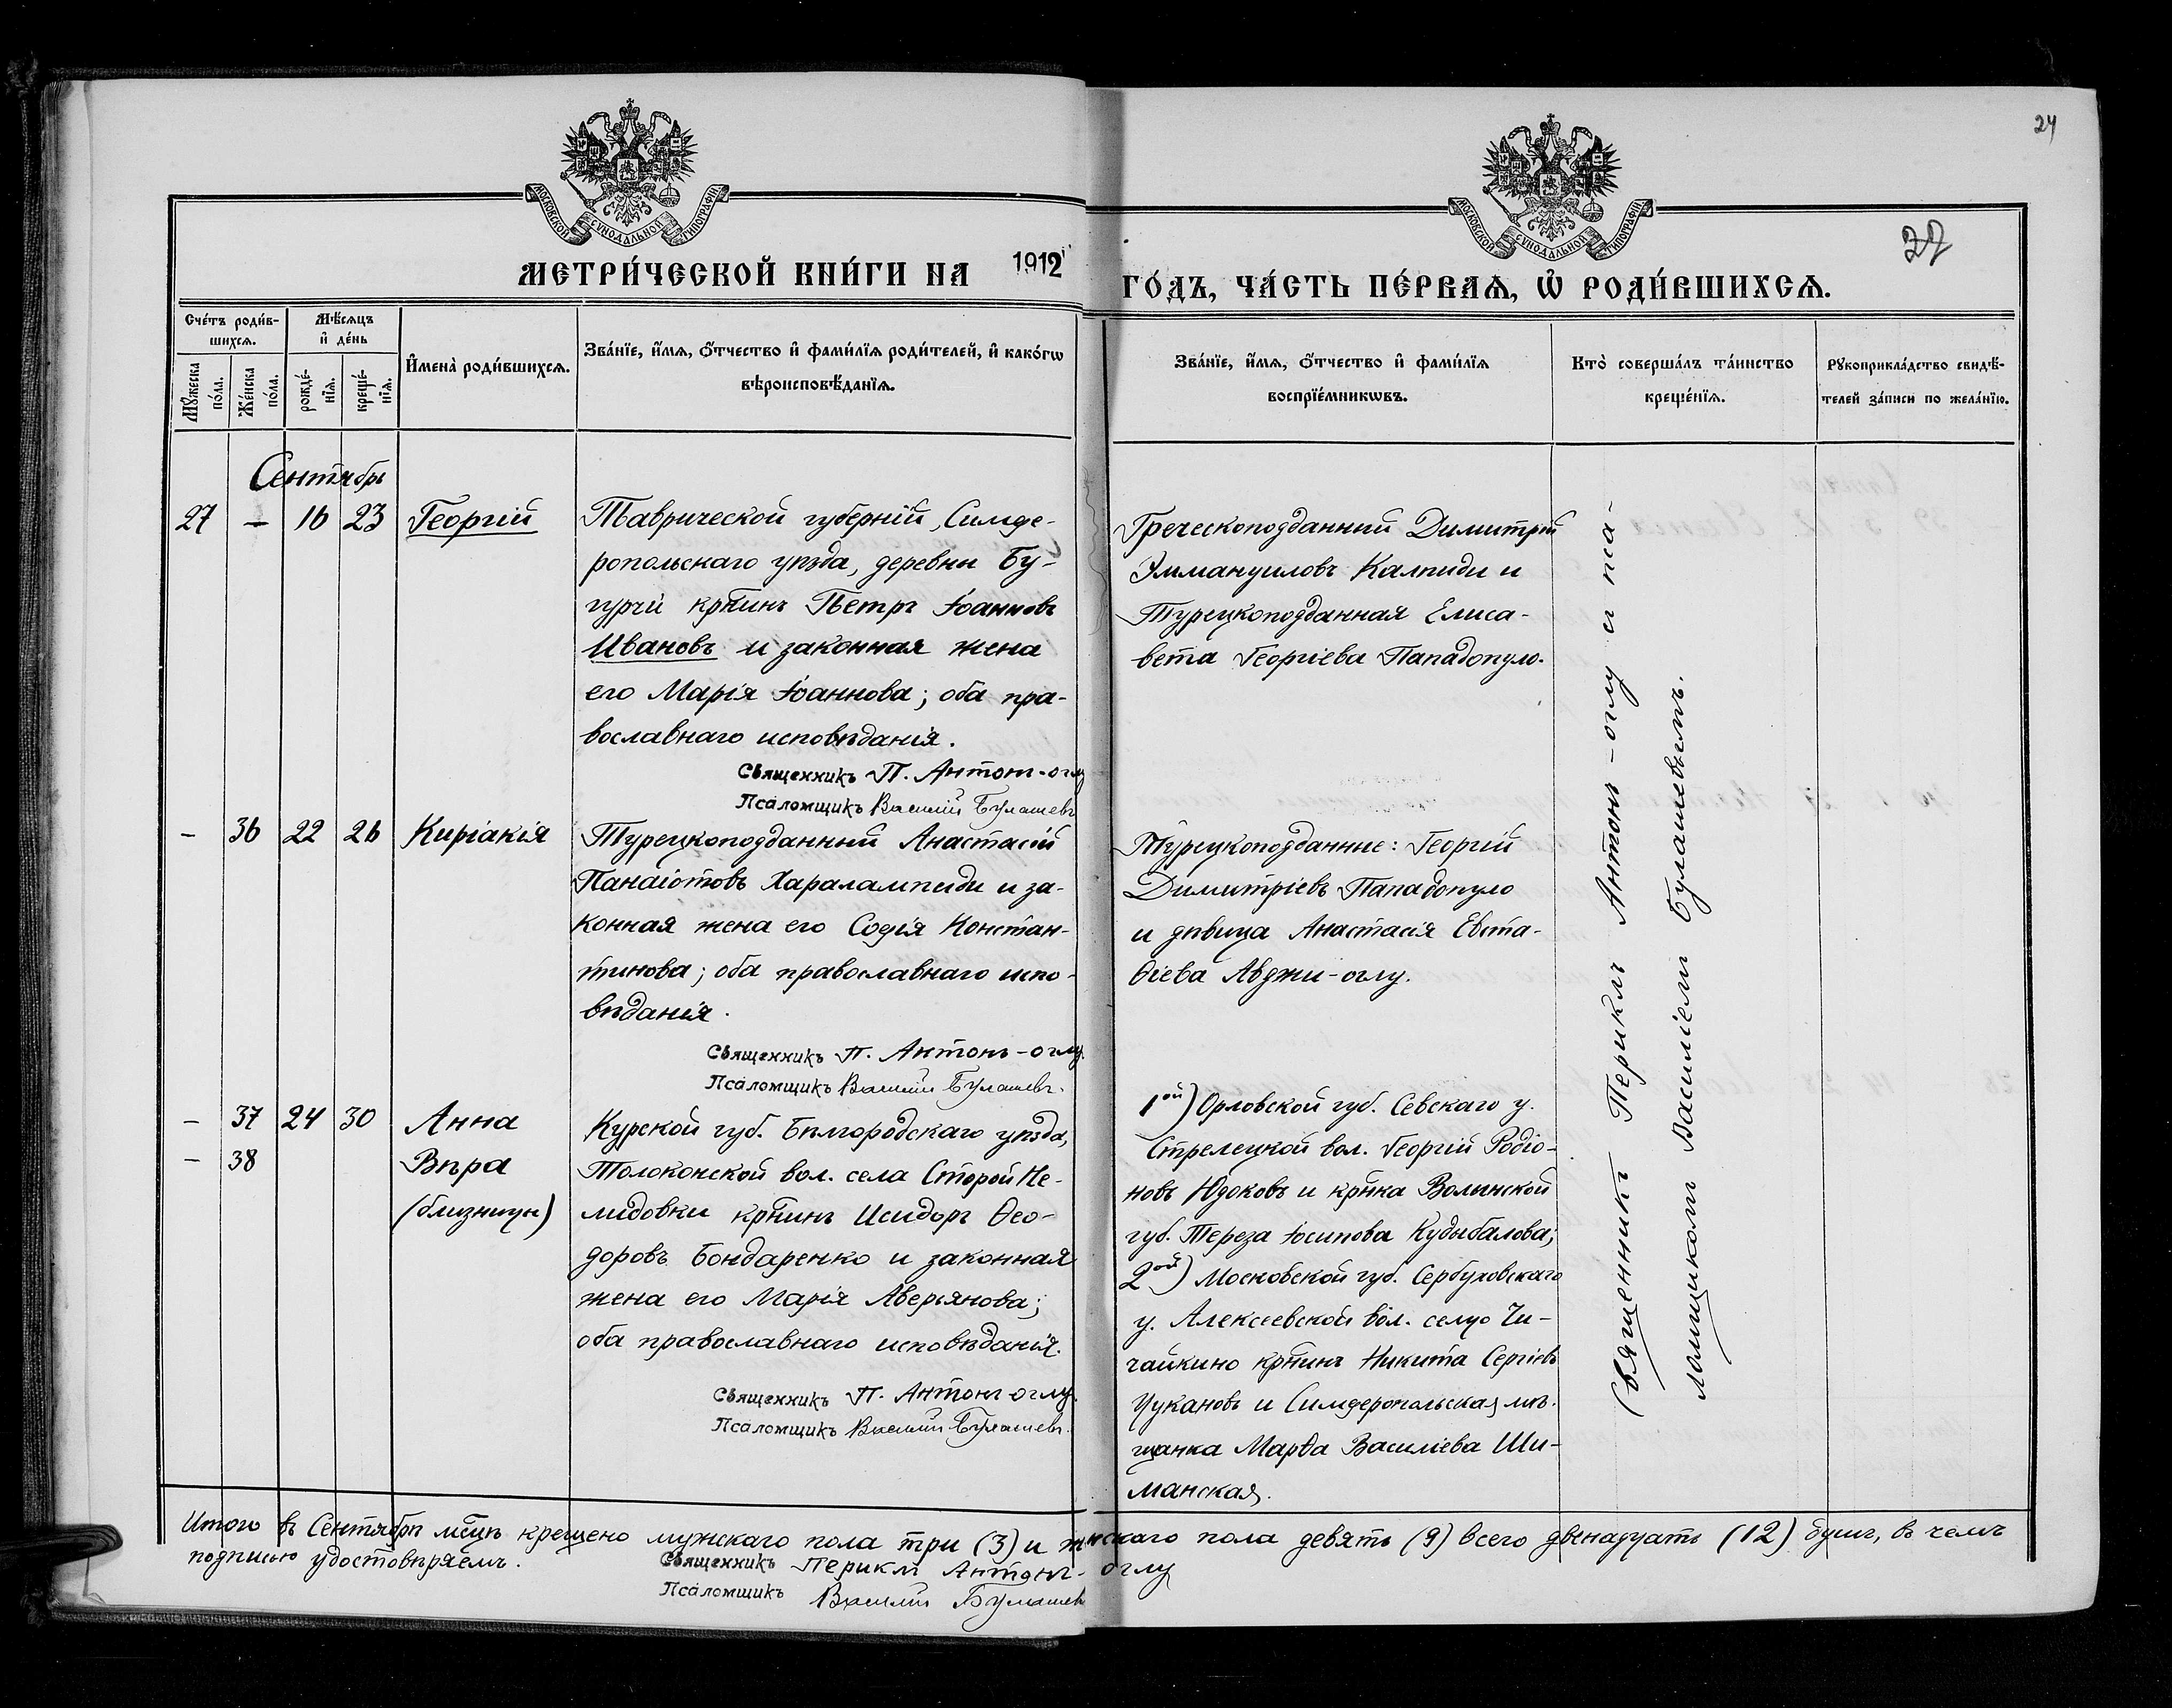 24
27
МОСКОВСКОЙ СУНОДАЛЬНОЙ ТИПОГРАФІИ
МОСКОВСКОЙ СУНОДАЛЬНОЙ ТИПОГРАФІИ
МЕТРИ́ЧЕСКОЙ КНИ́ГИ НА 1912 ГО́ДЪ, ЧА́СТЬ ПЕ́РВАѦ, Ѡ҆ РОДИ́ВШИХСѦ.
Сче́тъ роди́в-
шихсѧ.
Мѣ́сѧцъ
и҆ де́нь
Мꙋ́жеска
по́ла.
Же́нска
по́ла.
рожде́-
нїѧ.
креще́-
нїѧ.
И҆мена̀ роди́вшихсѧ.
Зва́нїе, и҆́мѧ, ѻ҆́тчество и҆ фами́лїѧ роди́телей, и҆ како́гѡ
вѣроисповѣ́данїѧ.
Зва́нїе, и҆́мѧ, ѻ҆́тчество и҆ фами́лїѧ
воспрїе́мникѡвъ.
Кто̀ соверша́лъ та́инство
креще́нїѧ.
Рꙋкоприкла́дство свидѣ́-
телей за́писи по жела́нїю.
Сентябрь
27 — 16 23 Георгій
Таврической губерніи, Симфе-
ропольскаго уѣзда, деревни Бу-
гурчи кр̄тинъ Петръ Іоанновъ
Ивановъ и законная жена
его Марія Іоаннова; оба пра-
вославнаго исповѣданія.
Священникъ П. Антонъ-оглу
Псаломщикъ Василій Булашевъ
Греческоподданный Димитрій
Эммануиловъ Калпиди и
Турецкоподданная Елиса-
вета Георгіева Пападопуло.
— 36 22 26 Киріакія
Турецкоподданный Анастасій
Панаіотовъ Харалампиди и за-
конная жена его Софія Констан-
тинова; оба православнаго испо-
вѣданія.
Священникъ П. Антонъ-оглу.
Псаломщикъ Василій Булашевъ.
Турецкоподданные: Георгій
Димитріевъ Пападопуло
и дѣвица Анастасія Евста-
ѳіева Авджи-оглу.
— 37 24 30 Анна
— 38 Вѣра
(близницы)
Курской губ. Бѣлгородскаго уѣзда,
Толоконской вол. села Старой Не-
лидовки кр̄тинъ Исидоръ Ѳео-
доровъ Бондаренко и законная
жена его Марія Аверьянова;
оба православнаго исповѣданія.
Священникъ П. Антонъ-оглу.
Псаломщикъ Василій Булашевъ.
1ой) Орловской губ. Севскаго у.
Стрелецкой вол. Георгій Родіо-
новъ Юдоковъ и кр̄нка Волынской
губ. Тереза Іосипова Кудыбалова;
2ой) Московской губ. Серпуховскаго
у. Алексеевской вол. сельцо Чи-
чайкино кр̄тинъ Никита Сергіевъ
Цукановъ и Симферопольская мѣ-
щанка Марѳа Василіева Ши-
манская.
Священникъ Периклъ Антонъ-оглу и пса-
ломщикомъ Василіемъ Булашевымъ.
Итого въ Сентябрѣ мс̄цѣ крещено мужскаго пола три (3) и женскаго пола девять (9) всего двенадцать (12) душъ, въ чемъ
подписью удостовѣряемъ.
Священникъ Периклъ Антонъ-оглу
Псаломщикъ Василій Булашевъ